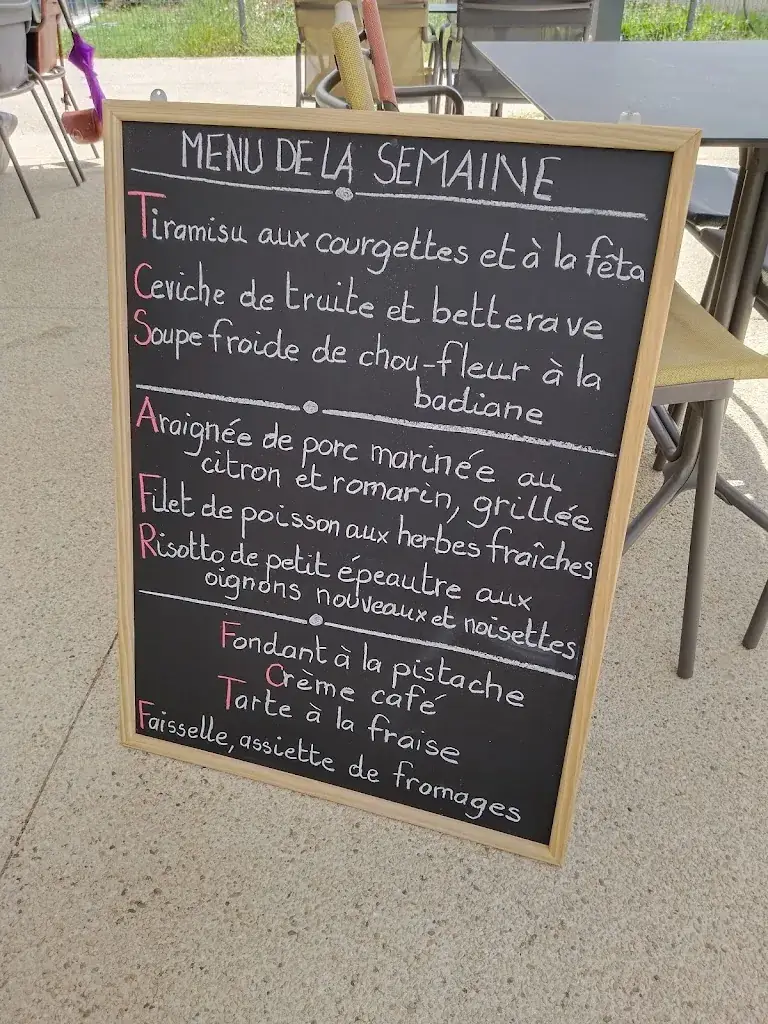 MENU DE LA SEMAINE
Tiramisu aux courgettes et à la fêta
Ceviche de truite et betterave
Soupe froide de chou-fleur à la
badiane
Araignée de porc marinée au
citron et romarin, grillée
Filet de poisson aux herbes fraîches
Risotto de petit épeautre aux
oignons nouveaux et noisettes
Fondant à la pistache
Crème café
Tarte à la fraise
Faisselle, assiette de fromages